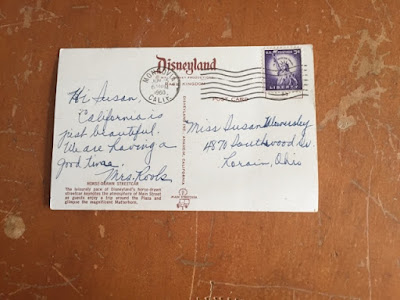 Disneyland
POST CARD
MONROVIA
CALIF.
1960
U.S. POSTAGE 3¢
LIBERTY
Hi Susan,
California is
just beautiful.
We are having a
good time.
Mrs. Kools
Miss Susan
4870 Southwood Dr.
Lorain, Ohio
HORSE-DRAWN STREETCAR
The leisurely pace of Disneyland's horse-drawn
streetcar the atmosphere of Main Street
as guests enjoy a trip around the Plaza and
glimpse the magnificent Matterhorn.